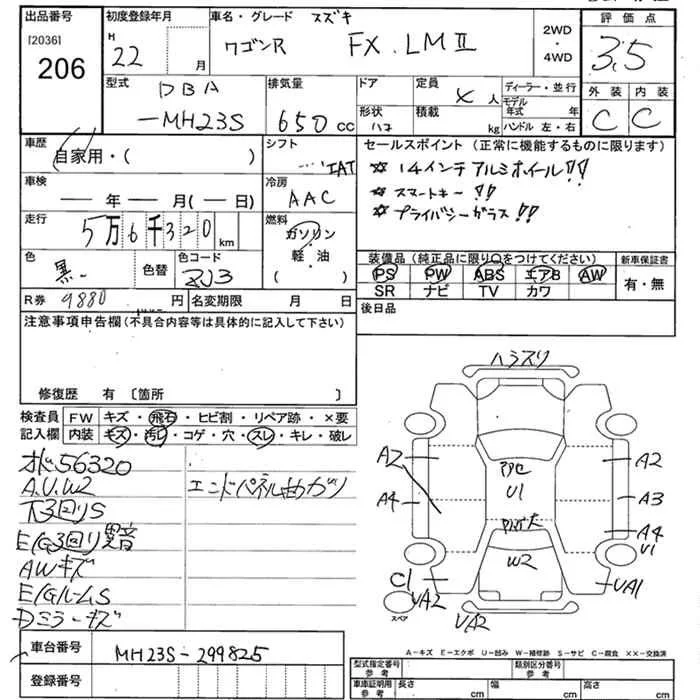 出品番号
[2036]
206
初度登録年月
H
22
月
車名・グレード スズキ
ワゴンR FX LMⅡ
2WD
・
4WD
評価点
3.5
外装 内装
C C
型式
DBA
-MH23S
排気量
650 cc
ドア
形状
ハコ
定員
4 人
積載
kg
ディーラー・並行
モデル
年式 年
ハンドル 左・右
車歴
自家用・( )
シフト
IAT
車検
― 年 ― 月(― 日)
冷房
AAC
走行
5万6千320 km
燃料
ガソリン
・
軽・油
( )
色
黒
色替
色コード
ZJ3
R券 9880 円
名変期限 月 日
セールスポイント(正常に機能するものに限ります)
☆ 14インチアルミホイール!!
☆ スマートキー!!
☆ プライバシーガラス!!
装備品(純正品に限り○をつけてください)
PS PW ABS エアB AW
SR ナビ TV カワ
新車保証書
有・無
後日品
注意事項申告欄(不具合内容等は具体的に記入して下さい)
修復歴 有〔箇所 〕
検査員
記入欄
FW キズ・飛石・ヒビ割・リペア跡・×要
内装 キズ・汚レ・コゲ・穴・スレ・キレ・破レ
56320
A.U.W2
下3回りS
E/G3回り異音
AWキズ
E/GルームS
Dミラーキズ
エンドパネル曲がり
ハラスリ
A2
A4
U1
W2
A2
A3
A4
U1
C1
UA2
UA2
UA1
スペア
A-キズ E-エクボ U-凹み W-補修跡 S-サビ C-腐食 XX-交換済
車台番号
MH23S-299825
登録番号
型式指定番号
参考
類別区分番号
参考
車庫証明用
参考
長さ cm
幅 cm
高さ cm